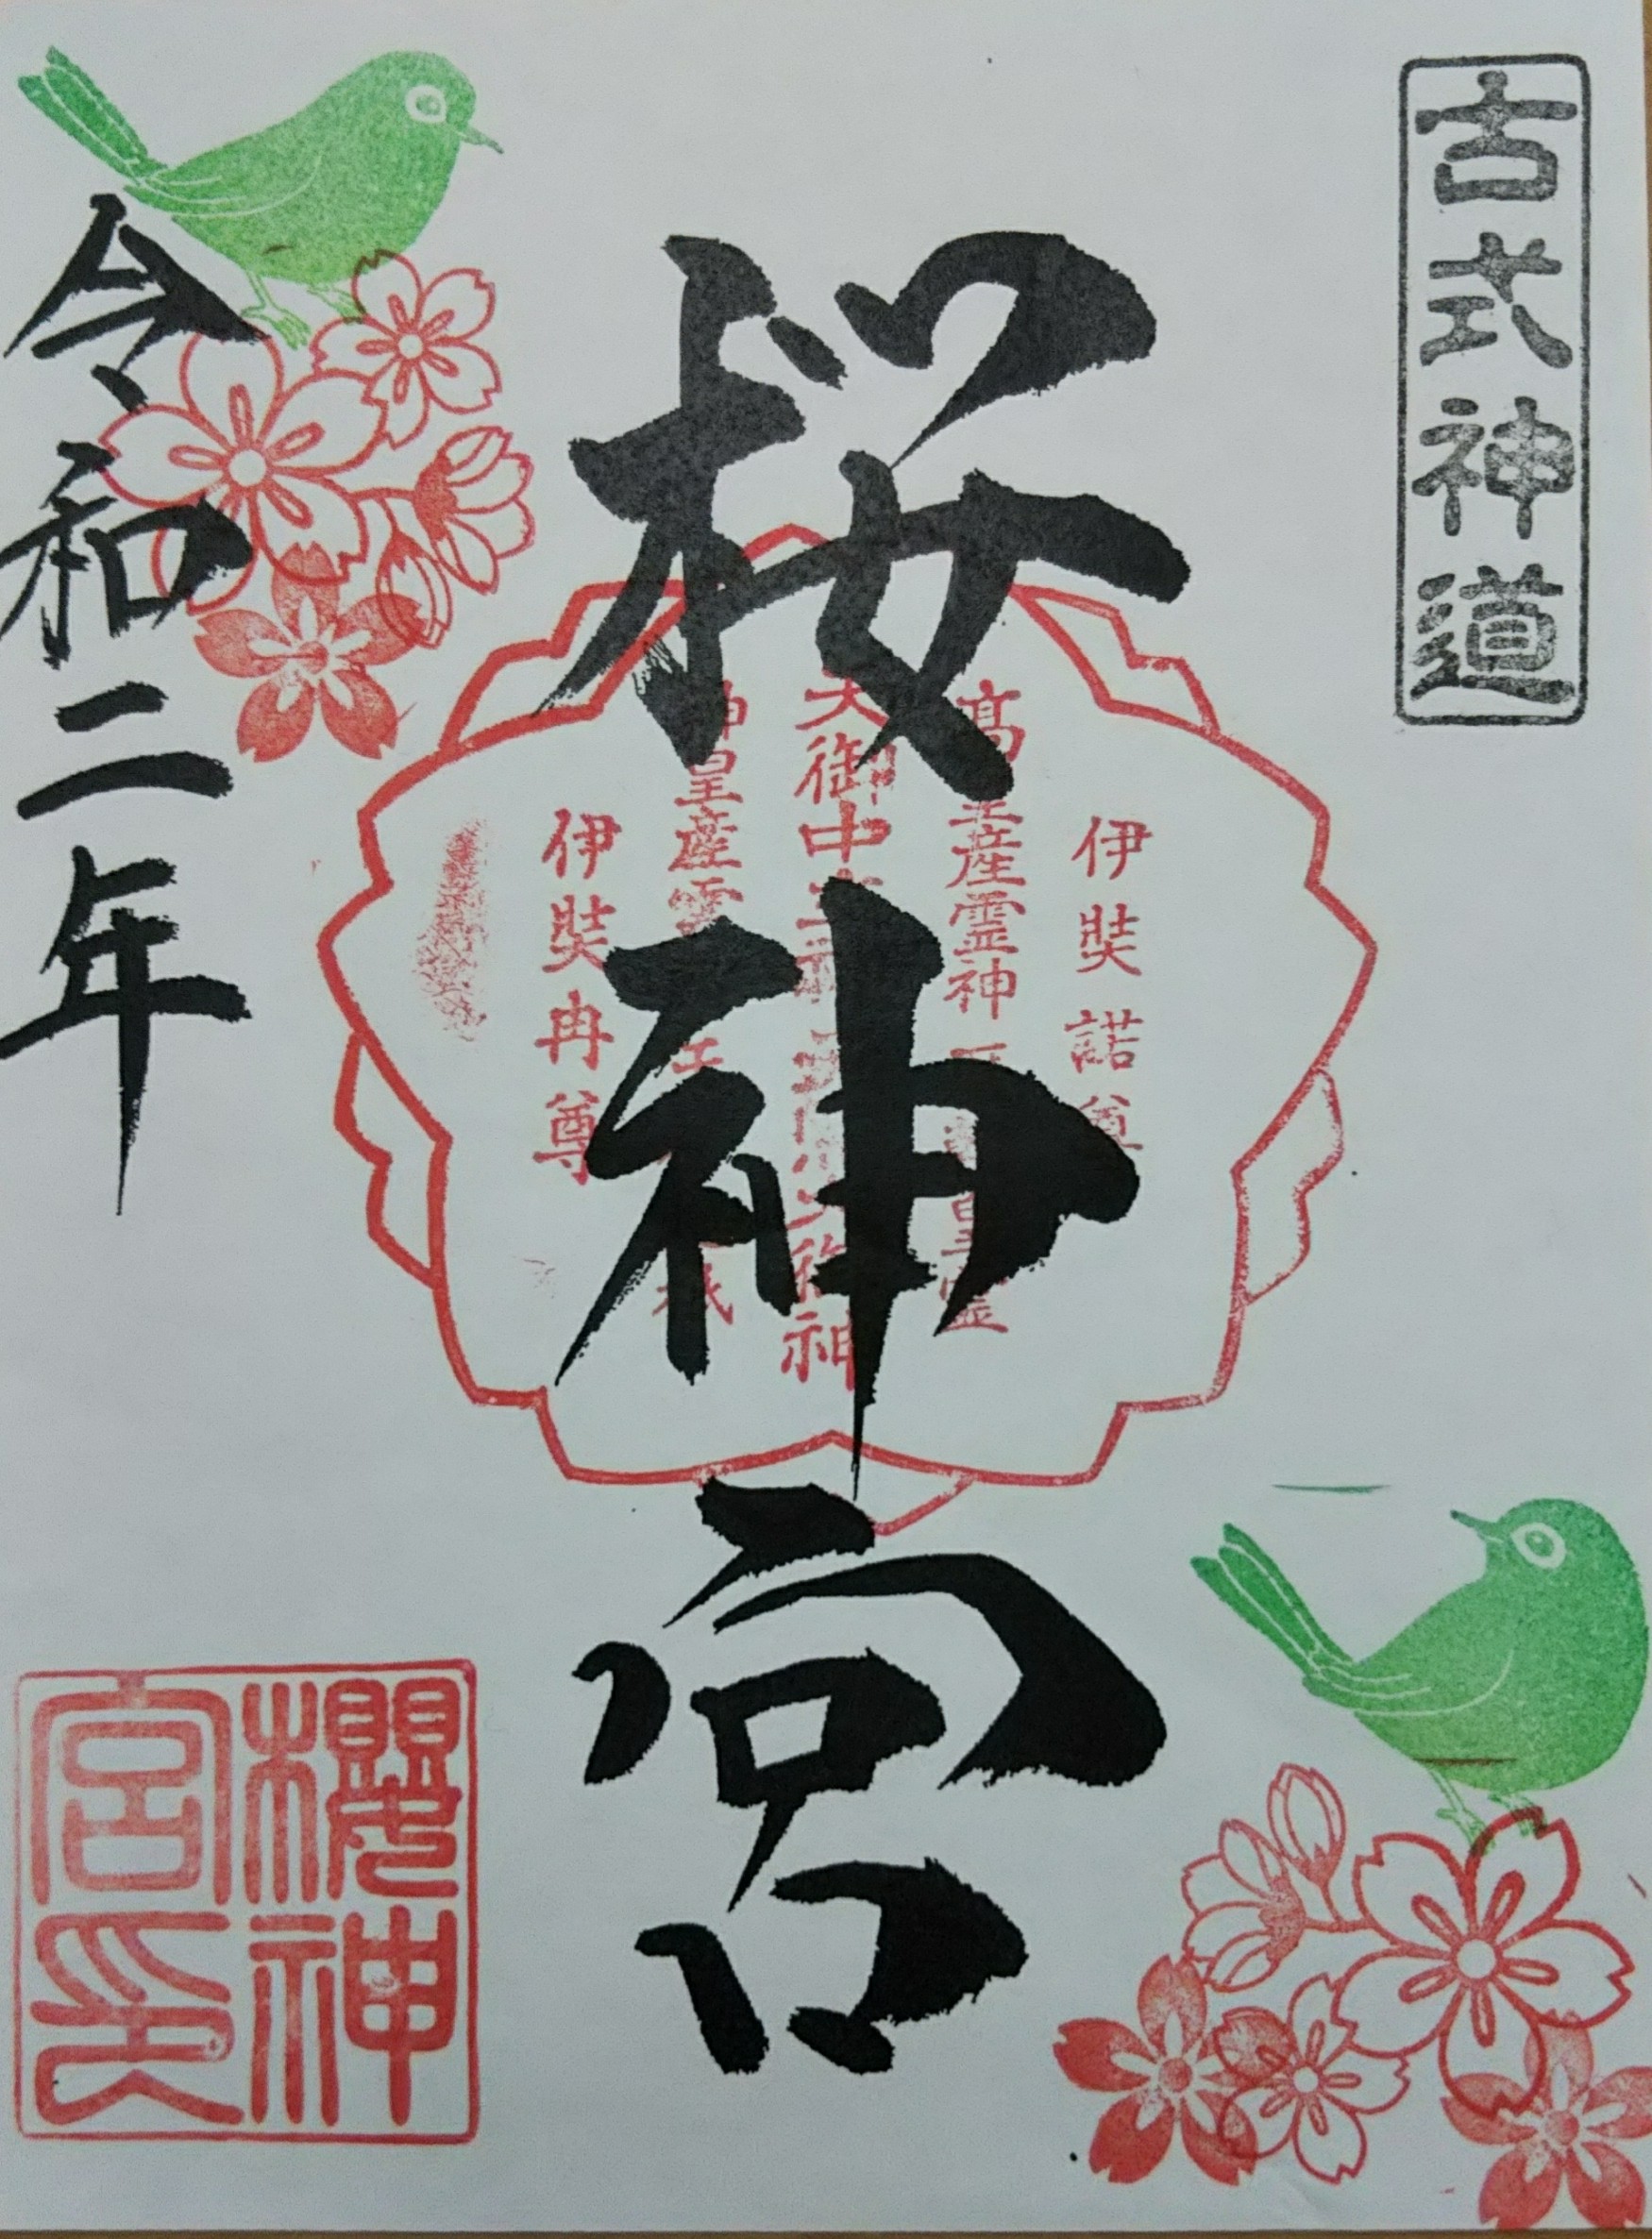 古式神道
桜神宮
伊弉諾尊
高皇産霊神 皇霊
天御中主神 神
神皇産霊
伊弉冉尊
令和二年
櫻神
宮印